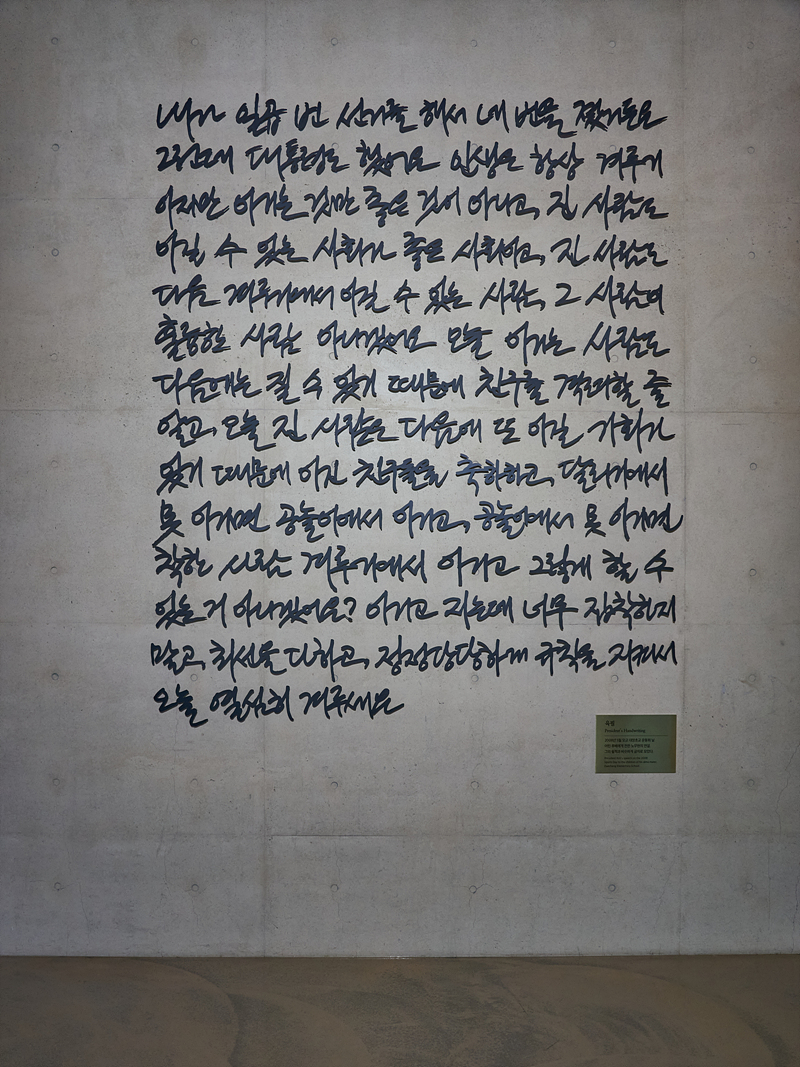 내가 일곱 번 선거를 해서 네 번을 졌거든요
그런데 대통령도 했어요 인생은 항상 겨루기
이지만 이기는 것만 좋은 것이 아니고, 진 사람도
이길 수 있는 사회가 좋은 사회이고, 진 사람도
다음 겨루기에서 이길 수 있는 사람, 그 사람이
훌륭한 사람 아니겠어요 오늘 이기는 사람도
다음에는 질 수 있기 때문에 친구를 격려할 줄
알고, 오늘 진 사람은 다음에 또 이길 기회가
있기 때문에 이긴 친구들을 축하하고, 달리기에서
못 이기면 공놀이에서 이기고, 공놀이에서 못 이기면
착한 사람 겨루기에서 이기고 그렇게 할 수
있는 거 아니겠어요? 이기고 지는데 너무 집착하지
말고, 최선을 다하고, 정정당당하게 규칙을 지켜서
오늘 열심히 겨루세요